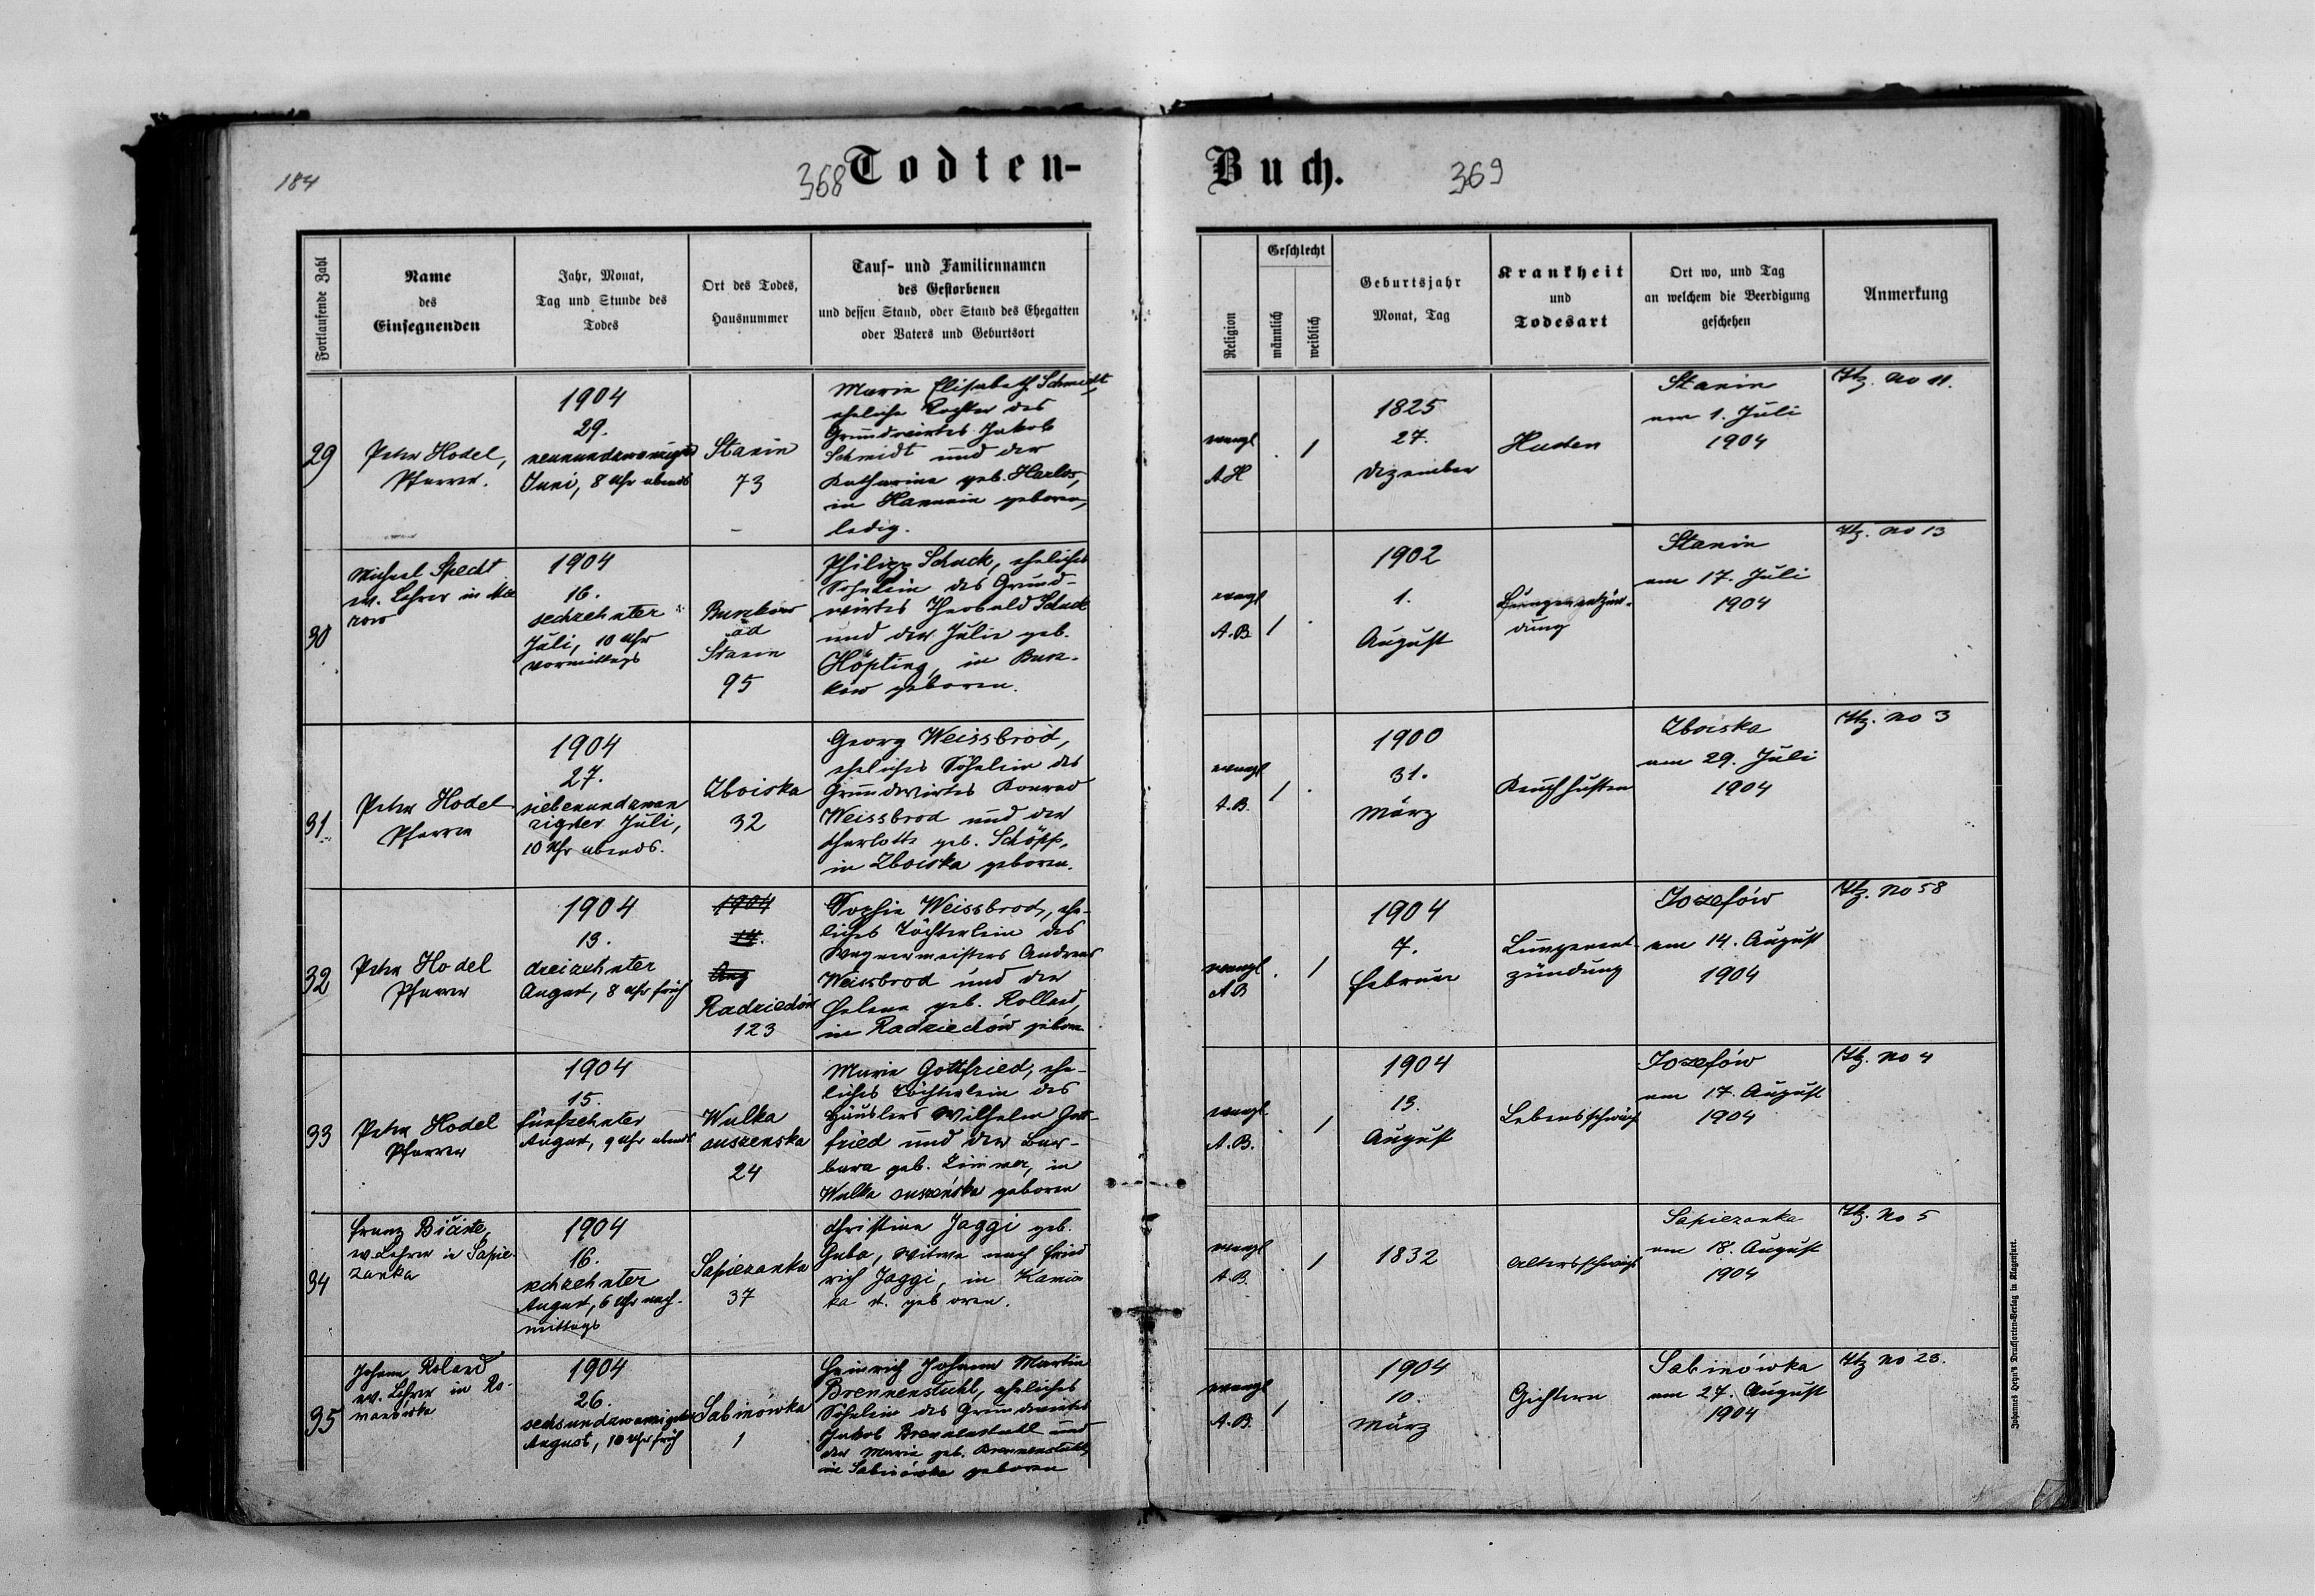 184
368 Todten-
Buch. 369
Fortlaufende Zahl
Name
des
Einsegnenden
Jahr, Monat,
Tag und Stunde des
Todes
Ort des Todes,
Hausnummer
Tauf- und Familiennamen
des Gestorbenen
und dessen Stand, oder Stand des Ehegatten
oder Vaters und Geburtsort
Religion
Geschlecht
männlich
weiblich
Geburtsjahr
Monat, Tag
Krankheit
und
Todesart
Ort wo, und Tag
an welchem die Beerdigung
geschehen
Anmerkung
29
Peter Hodel,
Pfarrer.
1904
29.
neunundzwanzigster
Juni, 8 Uhr abends
Stanin
73
Marie Elisabeth Schmidt,
eheliche Tochter des
Grundwirtes Jakob
Schmidt und der
Katharina geb. Harlos,
in geboren,
ledig.
evangl
AH
. 1
1825
27.
Dezember
Husten
Stanin
am 1. Juli
1904
Itz. No 11.
30
Michael Specht
ev. Lehrer in
1904
16.
sechzehnter
Juli, 10 Uhr
vormittags
Stanin
95
Philipp Schuck, eheliches
Söhnlein des Grund-
wirtes Theobald Schuck
und der Julie geb.
Höpfing, in
geboren.
evagl
A.B.
1 .
1902
1.
August
Lungenentzün-
dung
Stanin
am 17. Juli
1904
Itz. No 13
31
Peter Hodel
Pfarrer
1904
27.
siebenundzwan
zigster Juli,
10 Uhr abends.
Zboiska
32
Georg Weissbrod,
eheliches Söhnlein des
Grundwirtes Konrad
Weissbrod und der
Charlotte geb. Schöpp,
in Zboiska geboren.
evangl
A.B.
1 .
1900
31.
März
Keuchhusten
Zboiska
am 29. Juli
1904
Itz. No 3
32
Peter Hodel
Pfarrer
1904
13.
dreizehnter
August, 8 Uhr früh
1904
14.
Aug
Radziechów
123
Sophie Weissbrod, ehe-
liches Töchterlein des
Wagnermeisters Andreas
Weissbrod und der
Helene geb. Rolland,
in Radziechów geboren
evangl.
AB
. 1
1904
7.
Februar
Lungenent-
zündung
Iozefów
am 14. August
1904
Itz. No 58
33
Peter Hodel
Pfarrer
1904
15.
fünfzehnter
August, 9 Uhr abends
Wulka
suszenska
24
Marie Gottfried, ehe-
liches Töchterlein des
Häuslers Wilhelm Gott-
fried und der Bar-
bara geb. Zimmer, in
Wulka suszeńska geboren
evangl.
A.B.
. 1
1904
13.
August
Lebensschwäche
Iozefów
am 17. August
1904
Itz. No 4
34
Franz
ev. Lehrer in Sapie-
zanka
1904
16.
sechzehnter
August, 6 Uhr nach-
mittags
Sapiezanka
37
Christina Jaggi geb.
Guba, Witwe nach Heind
rich Jaggi, in Kamion
ka st. geboren.
evangl
A.B.
. 1
1832
Altersschwäche
Sapiezanka
am 18. August
1904
Itz. No 5
35
Johann Roland
ev. Lehrer in Ro-
manówka
1904
26.
sechsundzwanzigster
August, 10 Uhr früh
Sabinówka
1
Heinrich Johann Martin
Brennenstuhl, eheliches
Söhnlein des Grundwirtes
Jakob Brennenstuhl und
der Marie geb. Brennenstuhl,
in Sabinówka geboren
evangl
A.B.
1 .
1904
10.
März
Gichtern
Sabinówka
am 27. August
1904
Itz No 23.
Johannes Heyn's Drucksorten-Verlag in Klagenfurt.